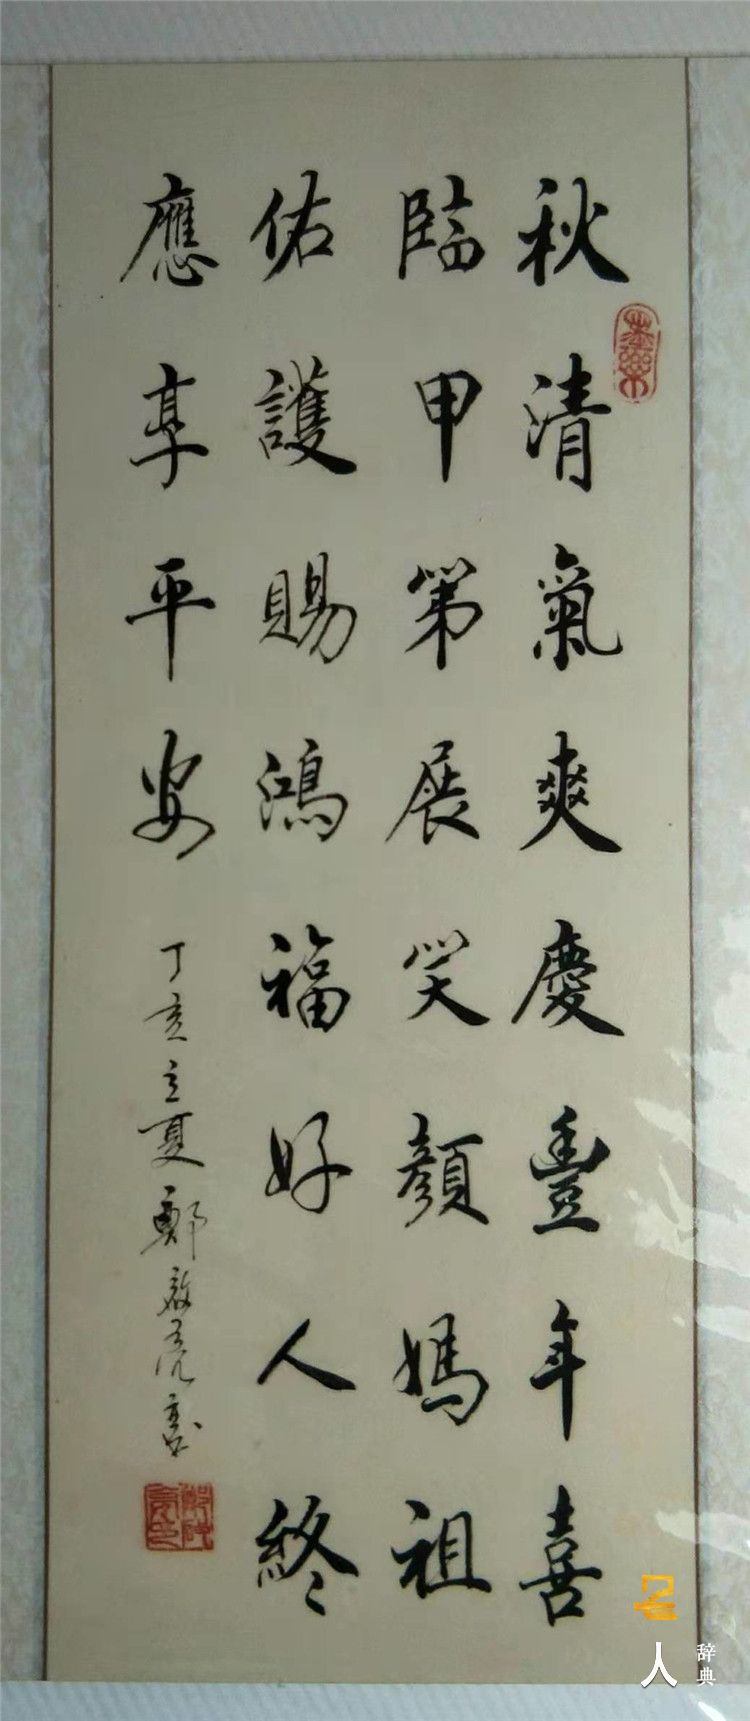 秋清氣爽慶豐年喜
臨甲第展笑顏媽祖
佑護賜鴻福好人終
應享平安
丁亥立夏鄭啟亮書
人
辞典